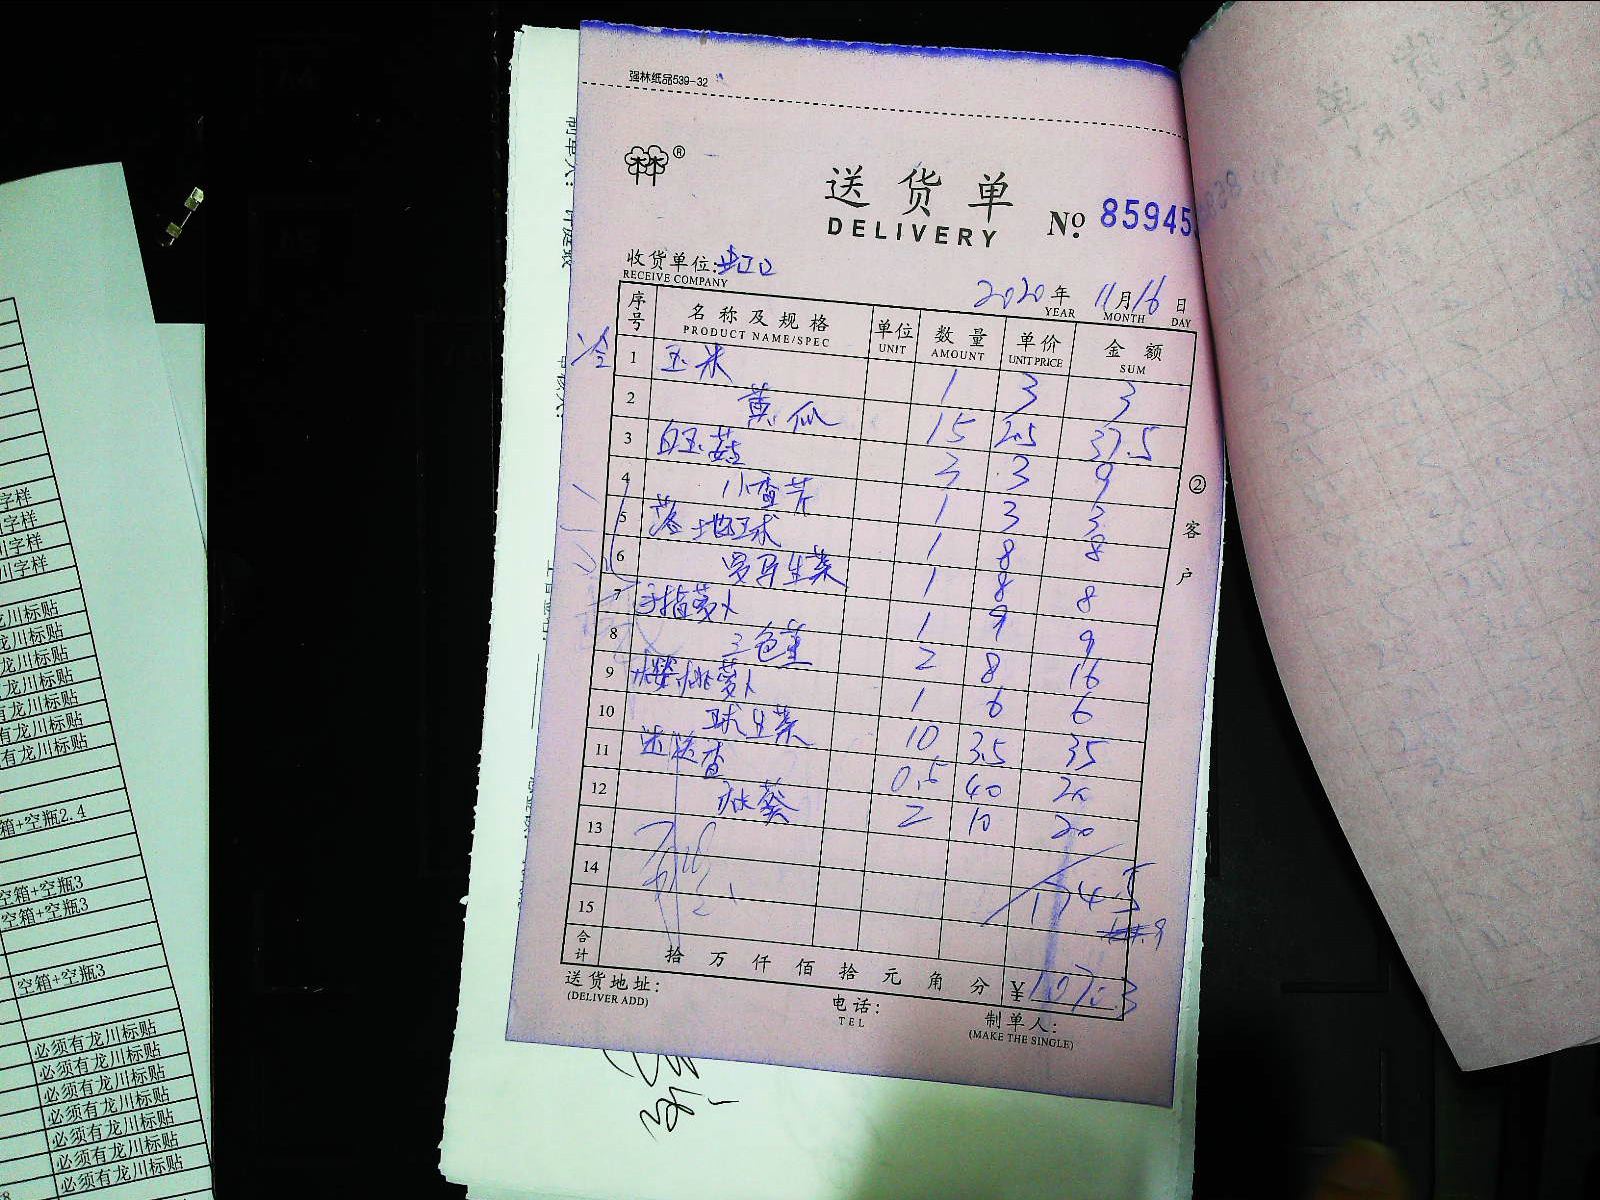 强林纸品539-32
送货单
DELIVERY
No. 85945
收货单位:虹口
RECEIVE COMPANY
2020年 11月 16日
YEAR MONTH DAY
序号 名称及规格 单位 数量 单价 金额
PRODUCT NAME/SPEC UNIT AMOUNT UNIT PRICE SUM
冷
1 玉米 1 3 3
2 黄瓜 15 2.5 37.5
3 白玉菇 3 3 9
4 小香芹 1 3 3
5 落地球 1 8 8
6 罗马生菜 1 8 8
7 手指萝卜 1 9 9
8 三色堇 2 8 16
9 樱桃萝卜 1 6 6
10 球生菜 10 3.5 35
11 迷迭香 0.5 40 20
12 秋葵 2 10 20
13
14 174.5
15
合计 拾 万 仟 佰 拾 元 角 分 ¥
送货地址:
(DELIVER ADD)
电话:
TEL
制单人:
(MAKE THE SINGLE)
②客户
字样
字样
川字样
川字样
龙川标贴
龙川标贴
龙川标贴
龙川标贴
有龙川标贴
有龙川标贴
有龙川标贴
箱+空瓶2.4
空箱+空瓶3
空箱+空瓶3
空箱+空瓶3
必须有龙川标贴
必须有龙川标贴
必须有龙川标贴
必须有龙川标贴
必须有龙川标贴
必须有龙川标贴
必须有龙川标贴